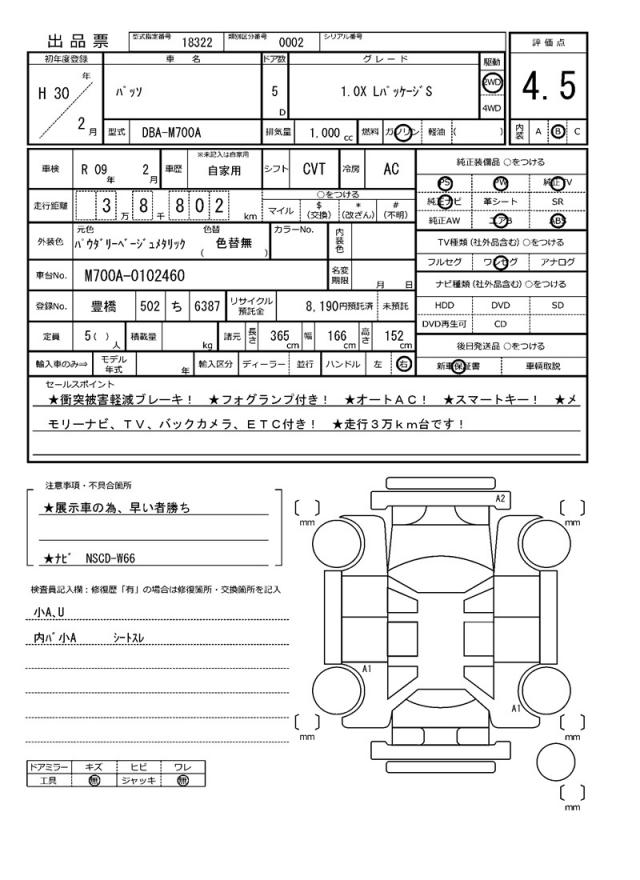 出品票
型式指定番号 18322 類別区分番号 0002 シリアル番号
初年度登録 車名 ドア数 グレード 駆動 評価点
H 30 年 2 月
パッソ 5 D 1.0X LパッケージS 2WD 4WD 4.5
型式 DBA-M700A 排気量 1.000 cc 燃料 ガソリン 軽油 ( ) 内装 A B C
車検 R 09 年 2 月 車歴 ※未記入は自家用 自家用 シフト CVT 冷房 AC
純正装備品 ○をつける
PS PW 純正TV
純正ナビ 革シート SR
純正AW エアB ABS
走行距離 3 万 8 千 8 0 2 km
○をつける
マイル $ (交換) * (改ざん) # (不明)
外装色 元色 パウダリーベージュメタリック 色替 ( 色替無 ) カラーNo. 内装色
TV種類 (社外品含む) ○をつける
フルセグ ワンセグ アナログ
車台No. M700A-0102460 名変期限 月 日
ナビ種類 (社外品含む) ○をつける
HDD DVD SD
DVD再生可 CD
登録No. 豊橋 502 ち 6387 リサイクル預託金 8,190円預託済 未預託
定員 5( ) 人 積載量 kg 諸元 長さ 365 cm 幅 166 cm 高さ 152 cm
後日発送品 ○をつける
新車保証書 車輌取説
輸入車のみ⇒ モデル年式 年 輸入区分 ディーラー 並行 ハンドル 左 右
セールスポイント
★衝突被害軽減ブレーキ! ★フォグランプ付き! ★オートAC! ★スマートキー! ★メ
モリーナビ、TV、バックカメラ、ETC付き! ★走行3万km台です!
注意事項・不具合箇所
★展示車の為、早い者勝ち
★ナビ NSCD-W66
検査員記入欄:修復歴「有」の場合は修復箇所・交換箇所を記入
小A、U
内バ小A シートスレ
A2
mm mm
A1
A1
mm mm
mm
ドアミラー キズ ヒビ ワレ
工具 無 ジャッキ 無